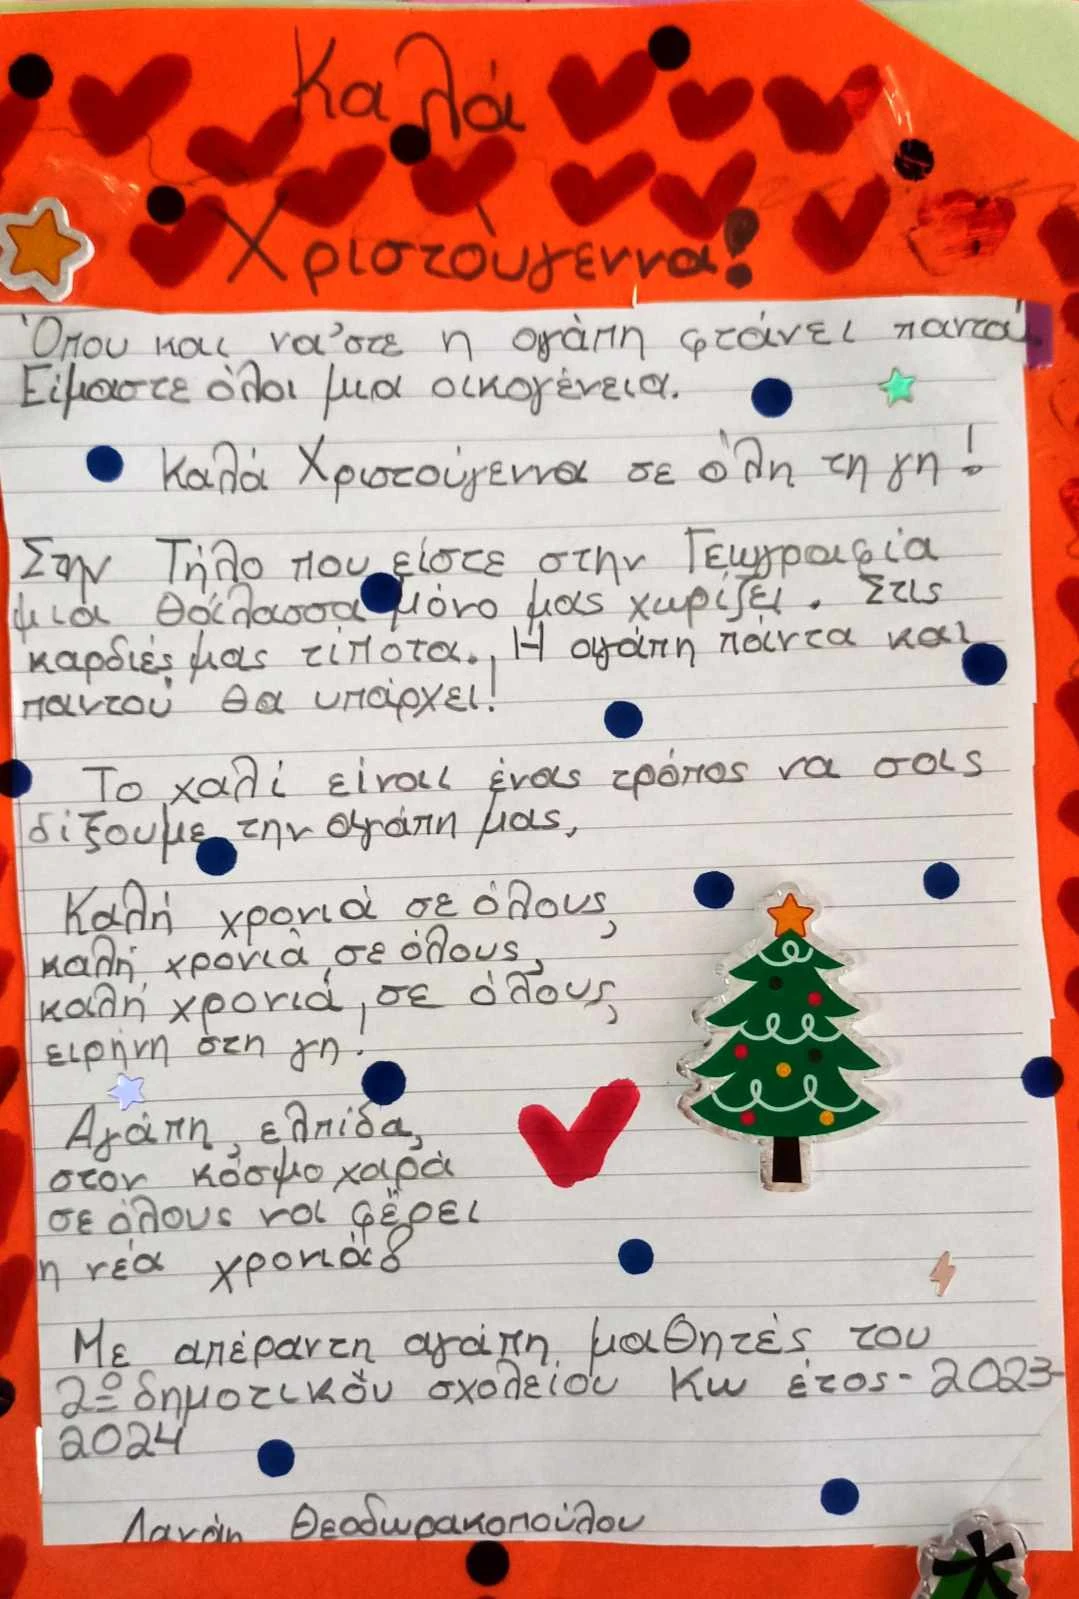 Καλά
Χριστούγεννα!
Όπου και να'στε η αγάπη φτάνει παντού.
Είμαστε όλοι μια οικογένεια.
Καλά Χριστούγεννα σε όλη τη γη!
Στην Τήλο που είστε στην Γεωγραφία
μια θάλασσα μόνο μας χωρίζει. Στις
καρδιές μας τίποτα. Η αγάπη πάντα και
παντού θα υπάρχει!
Το χαλί είναι ένας τρόπος να σας
δίξουμε την αγάπη μας,
Καλή χρονιά σε όλους,
καλή χρονιά, σε όλους,
καλή χρονιά, σε όλους,
ειρήνη στη γη!
Αγάπη, ελπίδα,
στον κόσμο χαρά
σε όλους να φέρει
η νέα χρονιά
Με απέραντη αγάπη, μαθητές του
2ο δημοτικού σχολείου Κω έτος- 2023-
2024
Δανάη Θεοδωρακοπούλου